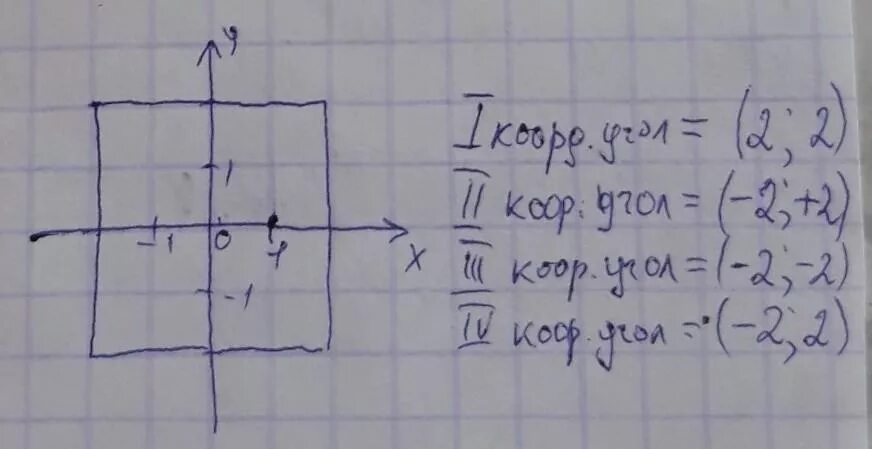 y
1
-1 0 1
x
-1
I коорд. угол = (2; 2)
II коор. угол = (-2; +2)
III коор. угол = (-2; -2)
IV коор. угол = (-2; 2)